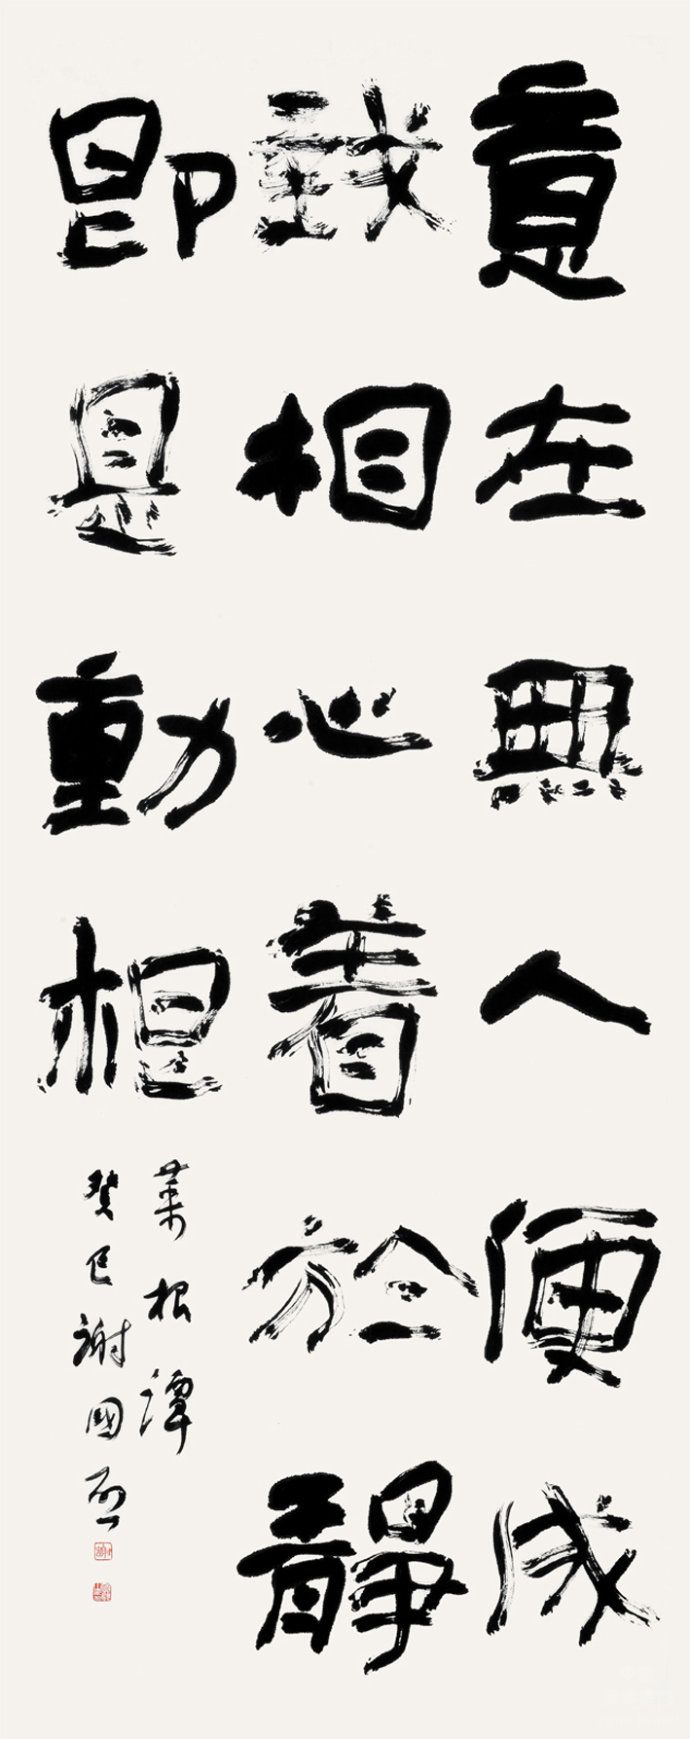 意在無人便成
我相心着於靜
即是動根
菜根譚
癸巳謝國